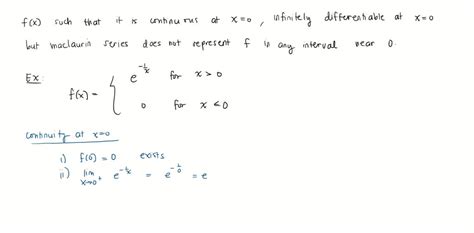 f(x) such that it is continuous at x=0, infinitely differentiable at x=0
but maclaurin series does not represent f in any interval near 0.
Ex:
f(x) = { e^{-1/x} for x > 0
0 for x < 0
continuity at x=0
i) f(0) = 0 exists
ii) lim x→0⁺ e^{-1/x} = e^{-1/0} = e